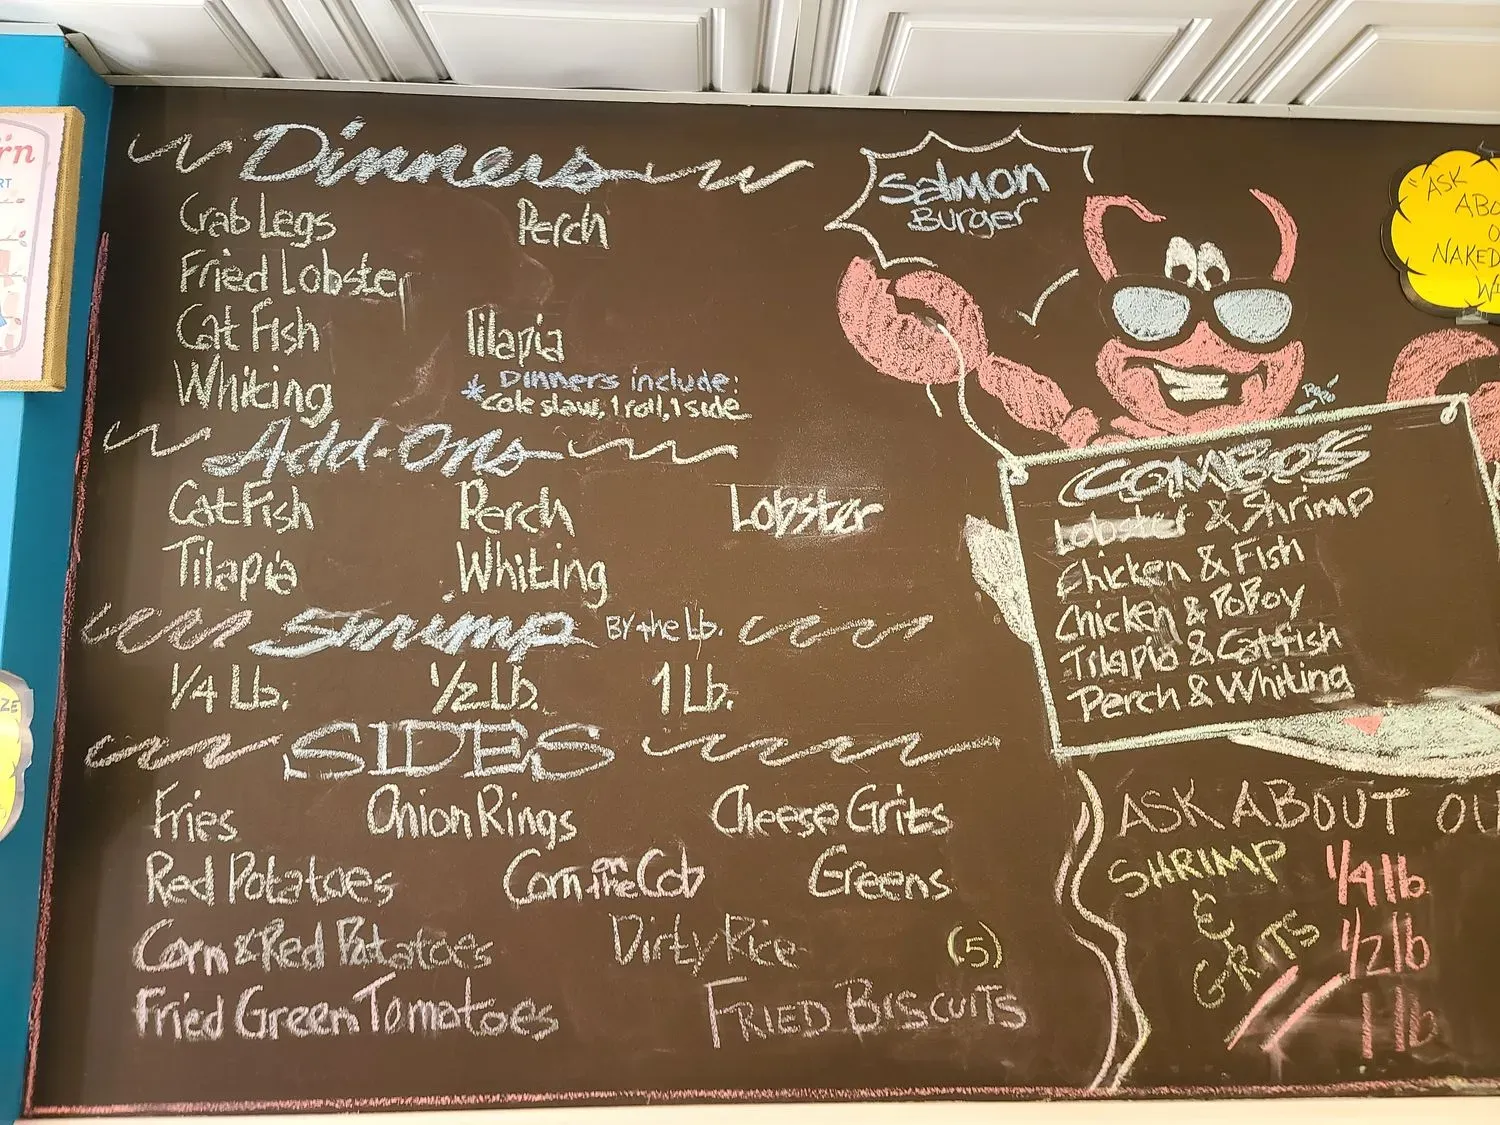 Dinners
Crab Legs Perch
Fried Lobster
Cat Fish Tilapia
Whiting
* Dinners include:
Cole slaw, 1 roll, 1 side
Add-Ons
CatFish Perch Lobster
Tilapia Whiting
Shrimp BY the Lb.
1/4 Lb. 1/2 Lb. 1 Lb.
SIDES
Fries Onion Rings Cheese Grits
Red Potatoes Corn on the Cob Greens
Corn & Red Potatoes Dirty Rice (5)
Fried Green Tomatoes FRIED BISCUITS
Salmon
Burger
COMBO'S
Lobster & Shrimp
Chicken & Fish
Chicken & PoBoy
Tilapia & Catfish
Perch & Whiting
ASK ABOUT OU
SHRIMP
&
GRITS
1/4 lb
1/2 lb
1 lb
"ASK
ABO
O
NAKED
WI
rn
RT
ZE